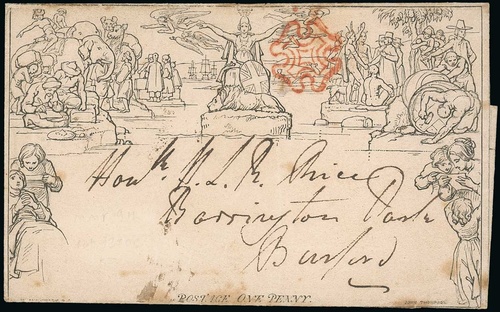 Honble. H. L. R. Rice
Barrington Park
Burford
POSTAGE ONE PENNY.